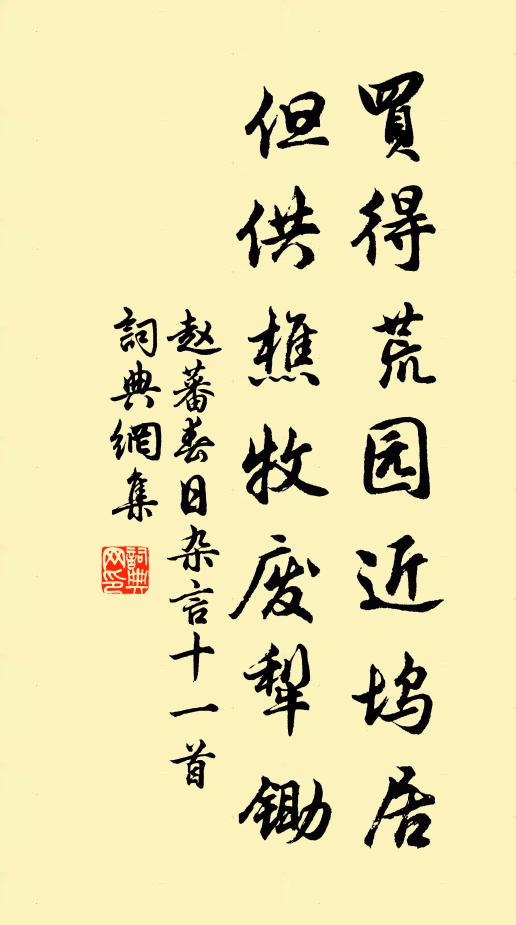 買得荒园近坞居
但供樵牧废犁锄
赵蕃春日杂言十一首
詞典網集
詞典网印